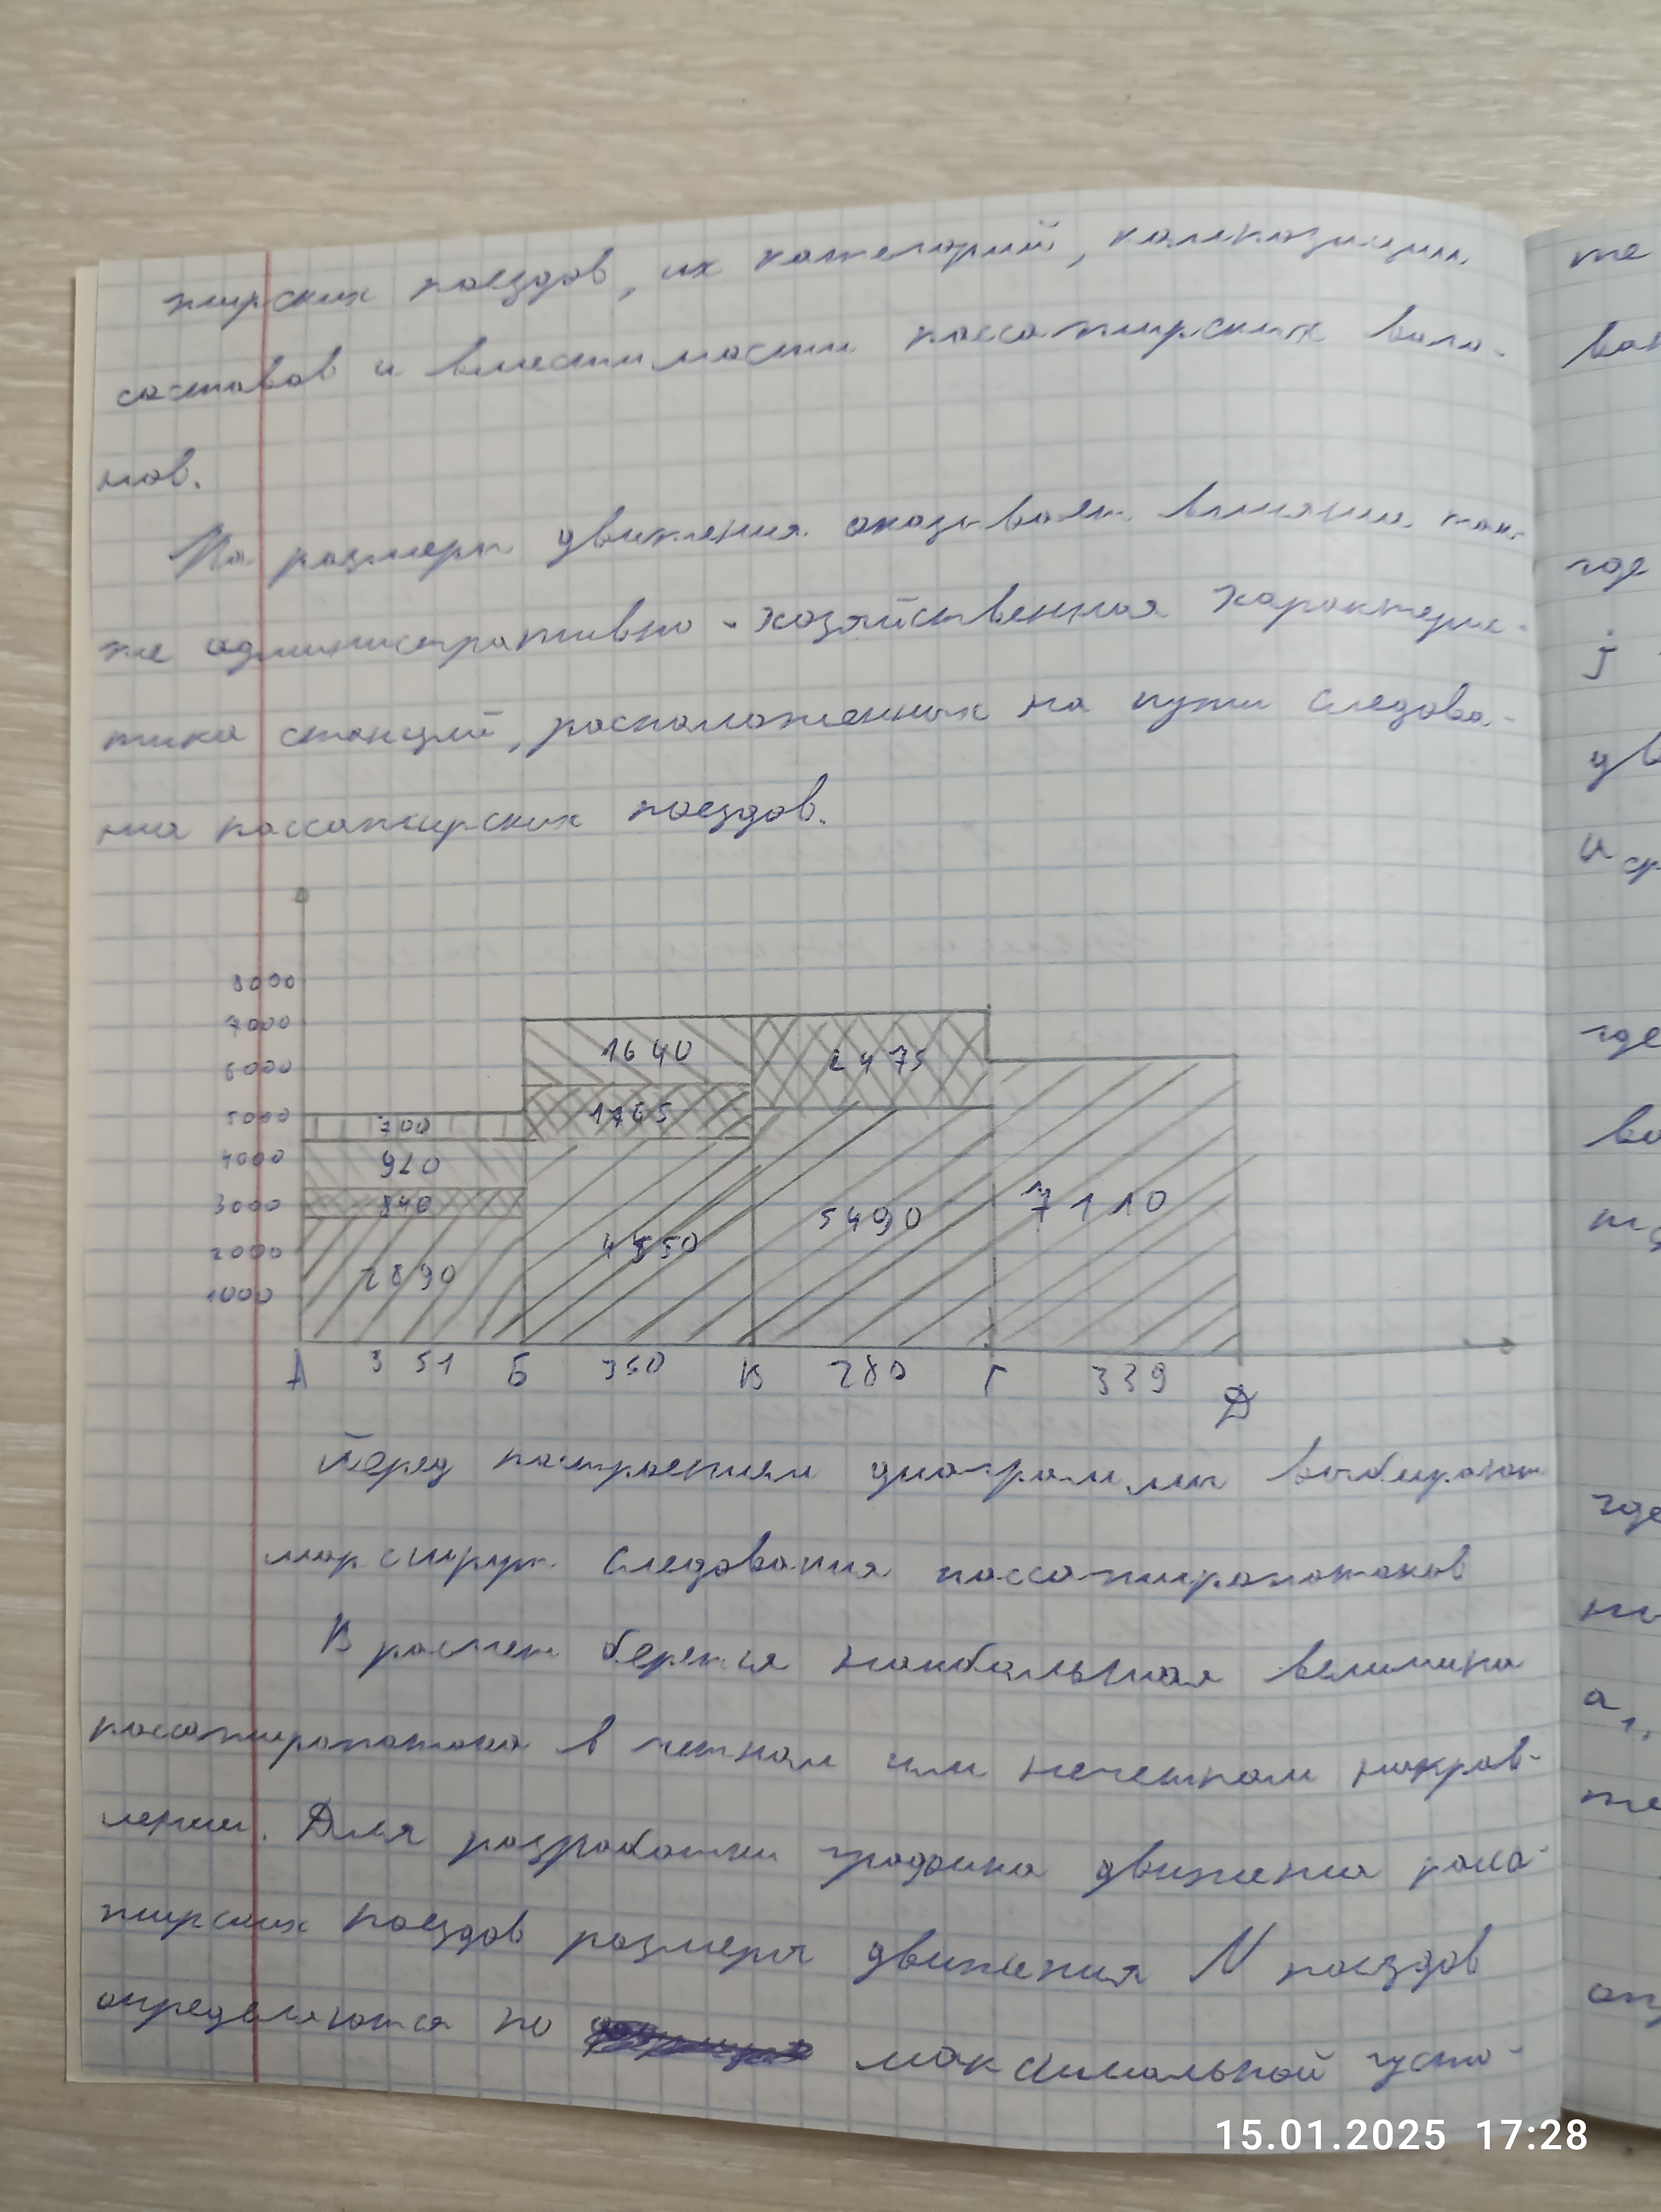 жирских поездов, их категорий, композиции
составов и вместимости пассажирских ваго-
нов.
На размеры движения оказывает влияние так-
же административно-хозяйственная характерис-
тика станций, расположенных на пути следова-
ния пассажирских поездов.
8000
7000
6000
5000
4000
3000
2000
1000
700
920
840
2890
1640
1765
4550
2475
5490
7110
А 351 Б 350 В 280 Г 339 Д
Перед построением диаграммы выбирают
маршрут следования пассажиропотоков
В расчет берется наибольшая величина
пассажиропотока в четном или нечетном направ-
лении. Для разработки графика движения пасса-
жирских поездов размеры движения N поездов
определяются по максимальной густо-
же
ваг
где
j
дв
где
где
a1,
оп
15.01.2025 17:28